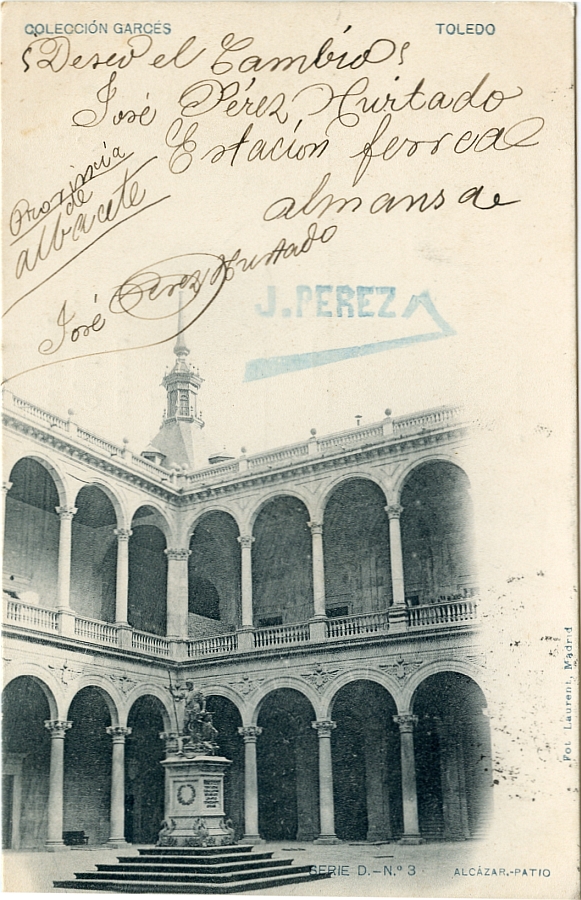 COLECCIÓN GARCÉS
TOLEDO
¿Deseo el Cambio?
José Pérez Hurtado
Estación ferreal
almansa de
Provincia
de
albacete
José Perez Hurtado
J. PEREZ
Fot Laurent, Madrid
SERIE D.-N.º 3
ALCÁZAR.-PATIO